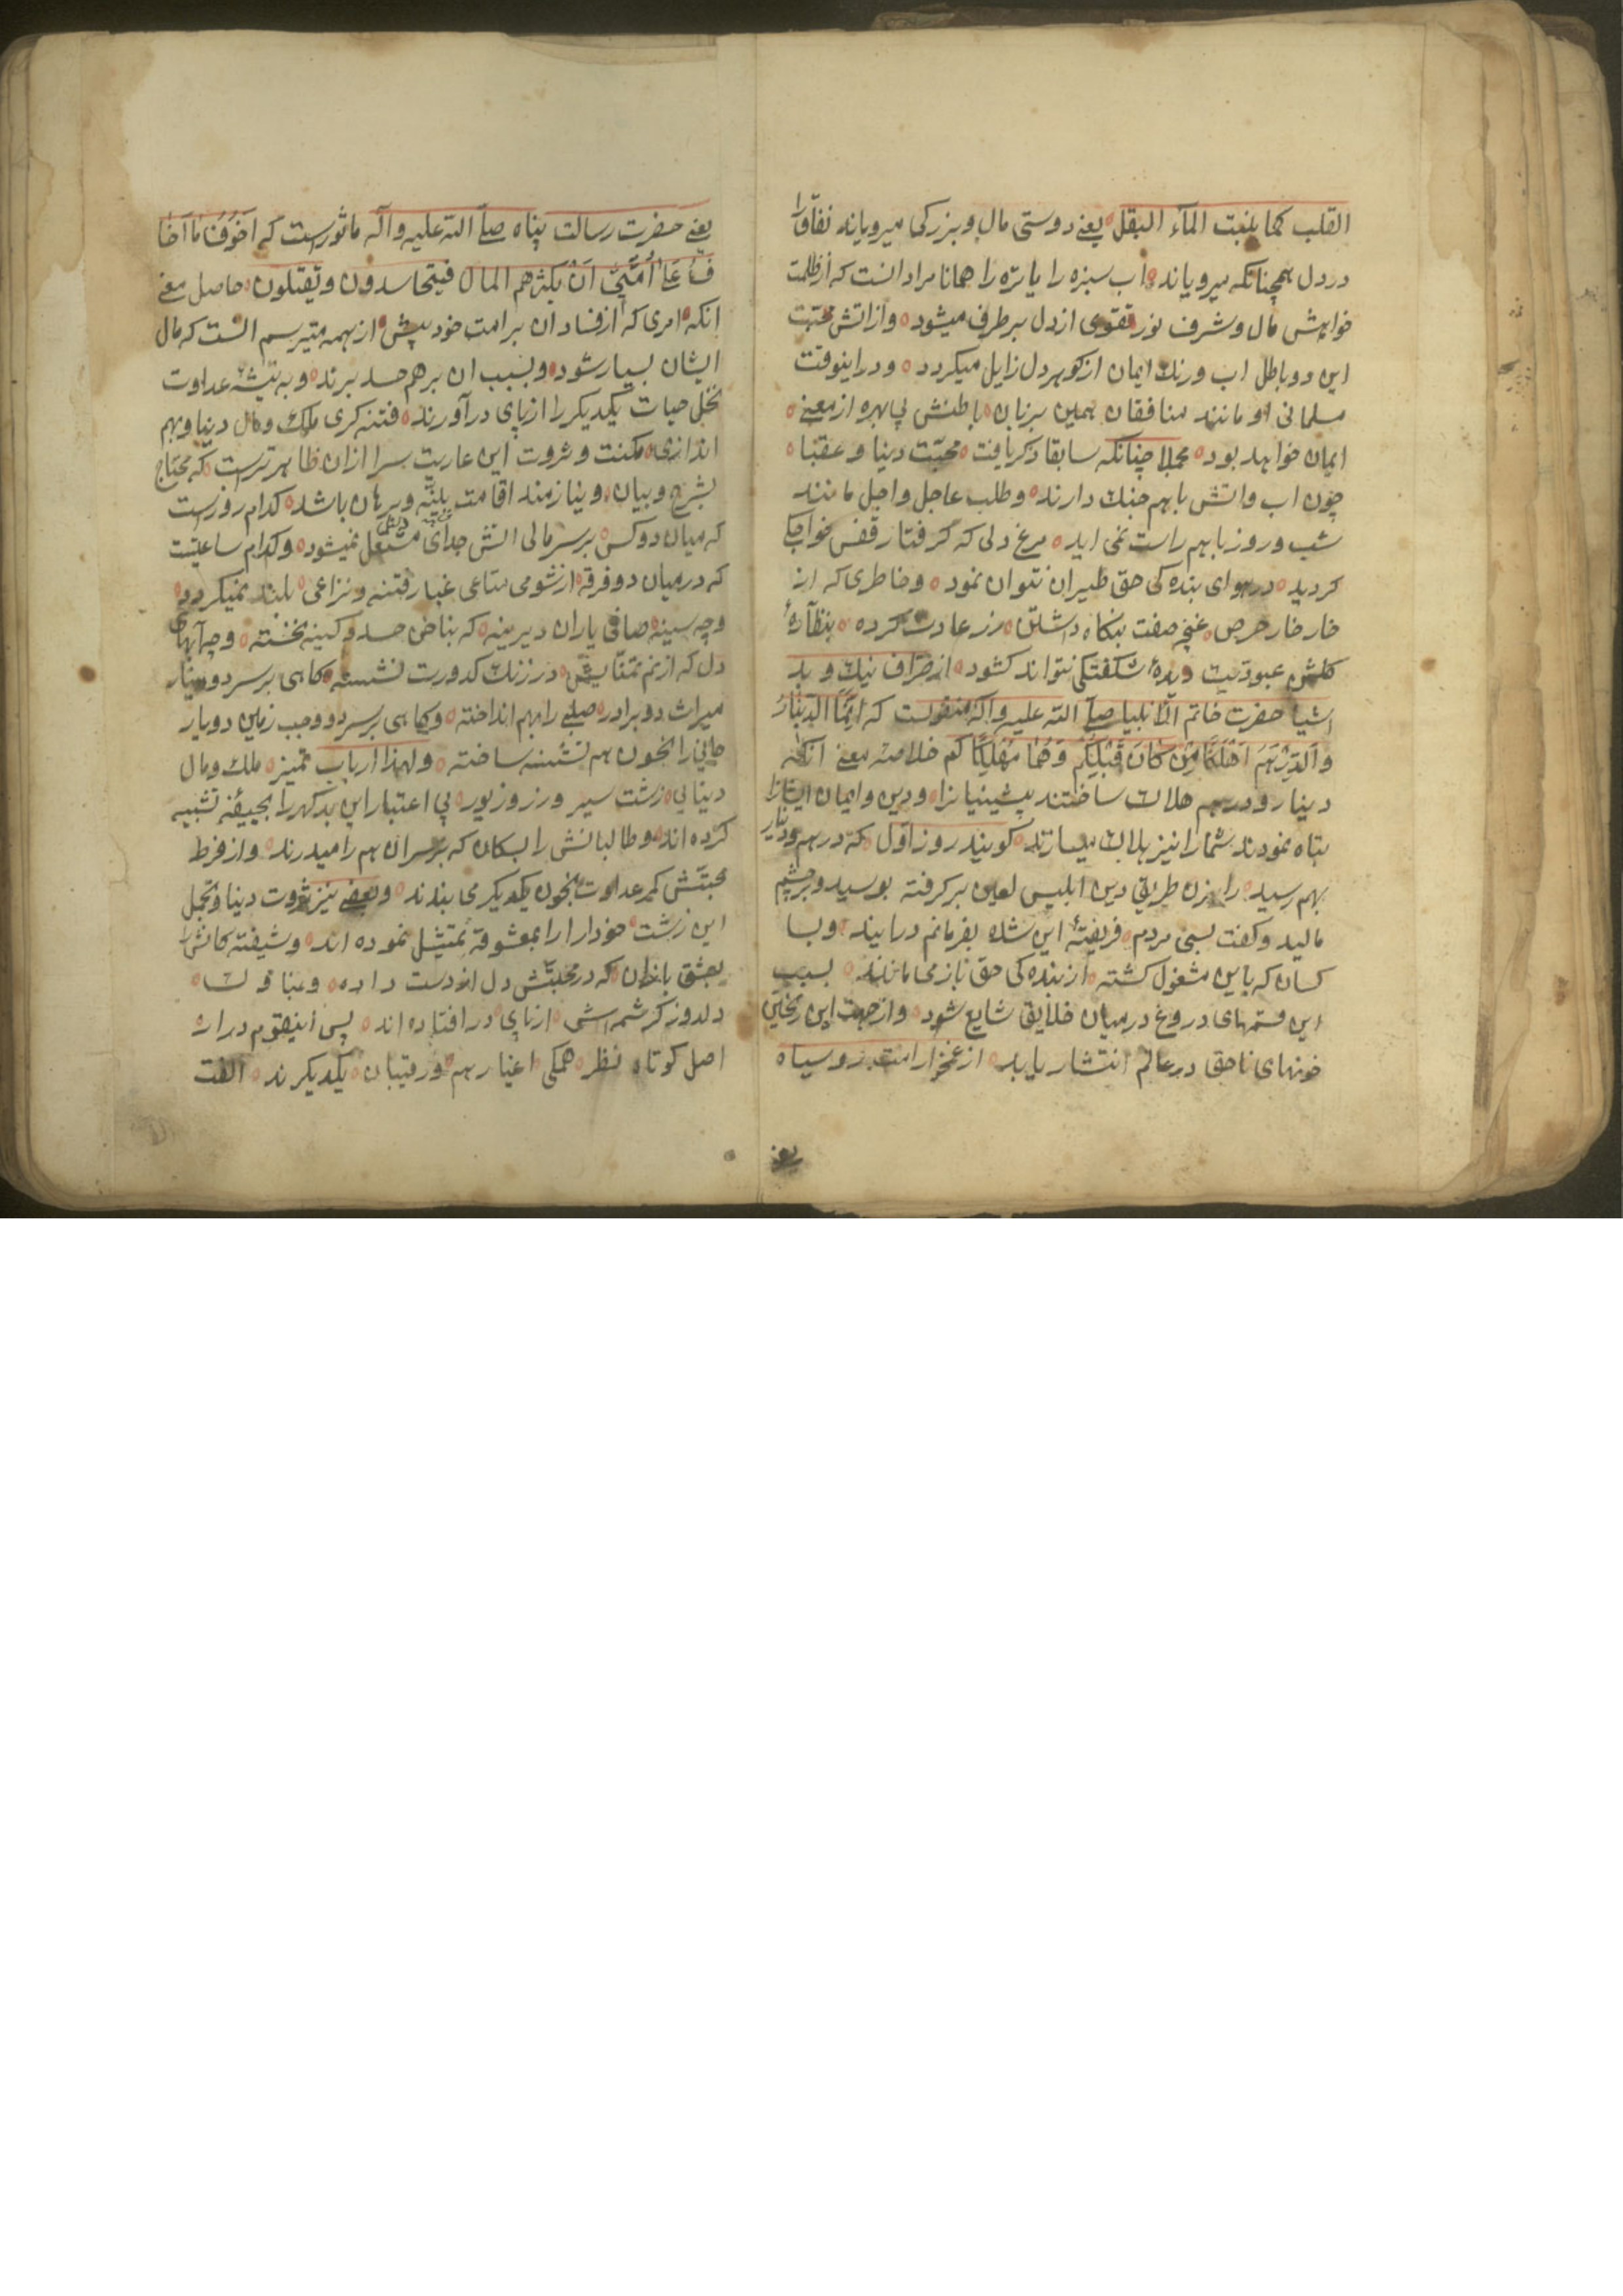 القلب کما ینبت المآء البقل یعنے دوستی مال و بزرکی میرویاند نفاق را
در دل همچنانکه میرویاند اب سبزه را یا تره را همانا مراد انست که از ظلمت
خواهش مال و شرف نور تقوی از دل برطرف میشود و از اتش محبت
این دو باطل اب و رنک ایمان از کوهر دل زایل میکردد و در اینوقت
مسلمانی او مانند منافقان همین بزبان باطنش بی بهره از معنے
ایمان خواهد بود مجملا چنانکه سابقا ذکر یافت محبت دنیا و عقبا
چون اب و اتش باهم جنک دارند و طلب عاجل و اجل مانند
شب و روز باهم راست نمی اید مرغ دلی که کرفتار قفس خواجکی
کردید در هوای بنده کی حق طیران نتوان نمود و خاطری که از
خار خار حرص غنچه صفت بنکاه داشتن زر عادت کرده بنظارهٔ
کلشن عبودیت دیدهٔ شکفتکی نتواند کشود از صراف نیک و بد
اشیا حضرت خاتم الانبیا صلے الله علیه و اله منقولست که انما الدینار
والدرهم اهلکا من کان قبلکم وهما مهلکاکم خلاصه معنے انکه
دینار و درهم هلاک ساختند پیشینیانرا و دین و ایمان ایشانرا
تباه نمودند شما را نیز هلاک میسازند کویند روز اول که درهم و دینار
بهم رسید راهزن طریق دین ابلیس لعین برکرفته بوسید و بر چشم
مالید و کفت بسی مردم فریفتهٔ این شده بفرمانم درایند و بسا
کسان که باین مشغول کشته از بنده کی حق باز می مانند بسبب
این قسمهای دروغ در میان خلایق شایع شود و از جهت این
خونهای ناحق در عالم انتشار یابد از غمخوار امت روسیاه
یعنے
یعنے حضرت رسالت پناه صلے الله علیه و آله ماثورست که اخوف ما اخا
ف علے امتی ان یکثر هم المال فیتحاسدون و یقتلون حاصل معنے
انکه امری که از فساد ان بر امت خود بیش از همه میترسم انست که مال
ایشان بسیار شود و بسبب ان برهم حسد برند و به تیشهٔ عداوت
نخل حیات یکدیکر را از پای در آورند فتنه کری ملک و مال دنیا و بهم
اندازی مکنت و ثروت این عاریت سرا ازان ظاهرترست که محتاج
بشرح و بیان و نیازمند اقامت بینه و برهان باشد کدام روزست
که میان دو کس بر سر مالی اتش جدای مشتعل نمیشود و کدام ساعتست
که در میان دو فرقه از شومی متاعی غبار فتنه و نزاعی بلند نمیکردد
و چه سینه صافی یاران دیرینه که بناخن حسد و کینه نخسته و چه آینهای
دل که از نم تمنایش در زنک کدورت نشسته کاهی بر سر دو دینار
میراث دو برادر صلبے را بهم انداخته و کاهی بر سر دو وجب زمین دو یار
جانی را بخون هم تشنه ساخته و لهذا ارباب تمیز ملک و مال
دنیا بی زشت سیر و زر و زیور بی اعتبار این بد کهر را بجیفهٔ تشبیه
کرده اند و طالبانش را بسکان که بر سر ان هم را میدرند و از فرط
محبتش کمر عداوت بخون یکدیکر می بندند و بعضے نیز ثروت دنیا و تجمل
این زشت خودارا را بمعشوقه تمثیل نموده اند و شیفته کانش را
بعشق بازان که در محبتش دل از دست داده و بناوک
دلدوز کرشمه اش از پای در افتاده اند پس اینقوم دراز
اصل کوتاه نظر همکی اغیار هم و رقیبان یکدیکرند الفت